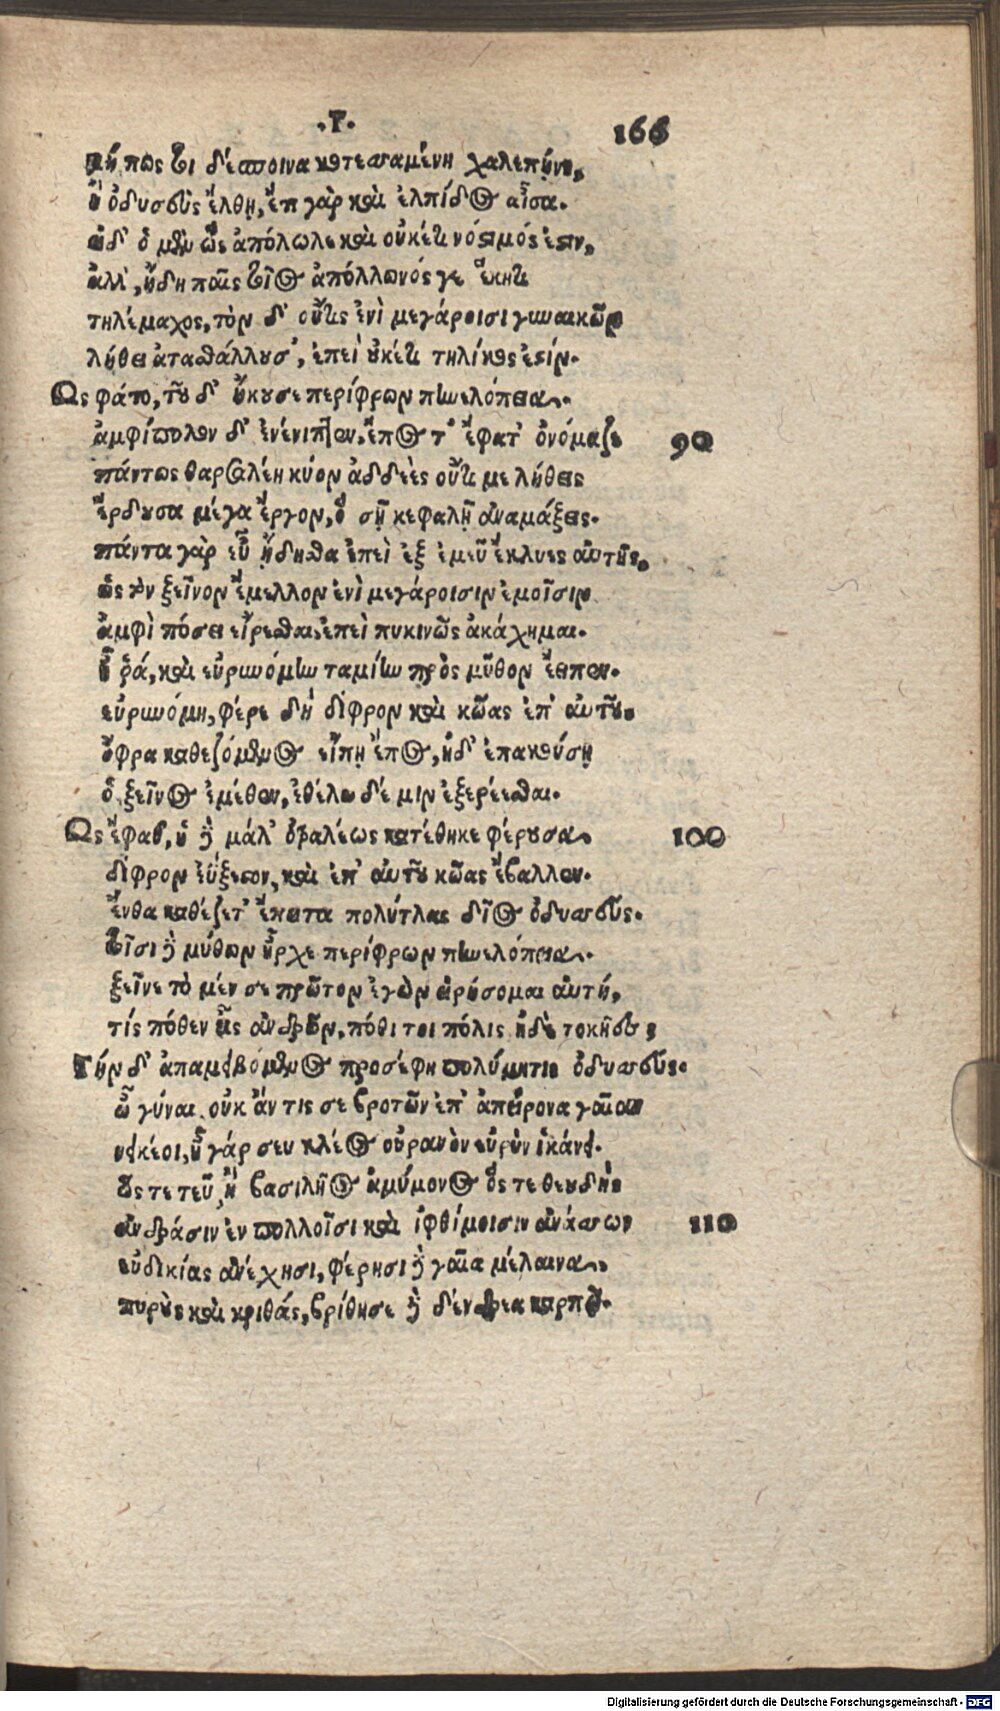 .Τ. 166
μή πως τοι δέσποινα κοτεσσαμένη χαλεπήνῃ,
ἢ ὀδυσεὺς ἔλθῃ, ἔτι γὰρ καὶ ἐλπίδος αἶσα.
εἰ δ' ὁ μὲν ὣς ἀπόλωλε καὶ οὐκέτι νόστιμός ἐστιν,
ἀλλ', ἤδη παῖς τοῖος ἀπόλλωνός γε ἕκητι
τηλέμαχος, τὸν δ' οὔτις ἐνὶ μεγάροισι γυναικῶν
λήθει ἀτασθάλλουσ', ἐπεὶ οὐκέτι τηλίκος ἐστίν.
Ως φάτο, τοῦ δ' ἤκουσε περίφρων πηνελόπεια.
ἀμφίπολον δ' ἐνένιπεν, ἔπος τ' ἔφατ' ὀνόμαζε 90
πάντως θαρσαλέη κύον ἀδδεὲς οὔτι με λήθεις
ἔρδουσα μέγα ἔργον, ὃ σῇ κεφαλῇ ἀναμάξεις.
πάντα γὰρ εὖ ᾔδησθα ἐπεὶ ἐξ ἐμεῦ ἔκλυες αὐτῆς,
ὡς τὸν ξεῖνον ἔμελλον ἐνὶ μεγάροισιν ἐμοῖσιν
ἀμφὶ πόσει εἴρεσθαι, ἐπεὶ πυκινῶς ἀκάχημαι.
Ἦ ῥά, καὶ εὐρυνόμην ταμίην πρὸς μῦθον ἔειπεν.
εὐρυνόμη, φέρε δὴ δίφρον καὶ κῶας ἐπ' αὐτοῦ,
ὄφρα καθεζόμενος εἴπῃ ἔπος, ἠδ' ἐπακούσῃ
ὁ ξεῖνος ἐμέθεν, ἐθέλω δέ μιν ἐξερέεσθαι.
Ως ἔφαθ', ἡ δὲ μάλ' ὀτραλέως κατέθηκε φέρουσα 100
δίφρον ἐΰξεστον, καὶ ἐπ' αὐτοῦ κῶας ἔβαλλεν.
ἔνθα καθέζετ' ἔπειτα πολύτλας δῖος ὀδυσσεύς.
τοῖσι δὲ μύθων ἦρχε περίφρων πηνελόπεια.
ξεῖνε τὸ μέν σε πρῶτον ἐγὼν εἰρήσομαι αὐτή,
τίς πόθεν εἶς ἀνδρῶν, πόθι τοι πόλις ἠδὲ τοκῆες;
Τὴν δ' ἀπαμειβόμενος προσέφη πολύμητις ὀδυσσεύς.
ὦ γύναι οὐκ ἄν τις σε βροτῶν ἐπ' ἀπείρονα γαῖαν
νεικέοι, ἦ γάρ σευ κλέος οὐρανὸν εὐρὺν ἱκάνει.
ὥς τε τεῦ, ἢ βασιλῆος ἀμύμονος ὅς τε θεουδὴς
ἀνδράσιν ἐν πολλοῖσι καὶ ἰφθίμοισιν ἀνάσσων 110
εὐδικίας ἀνέχῃσι, φέρῃσι δὲ γαῖα μέλαινα,
πυροὺς καὶ κριθάς, βρίθησε δὲ δένδρεα καρπῷ.
Digitalisierung gefördert durch die Deutsche Forschungsgemeinschaft - DFG